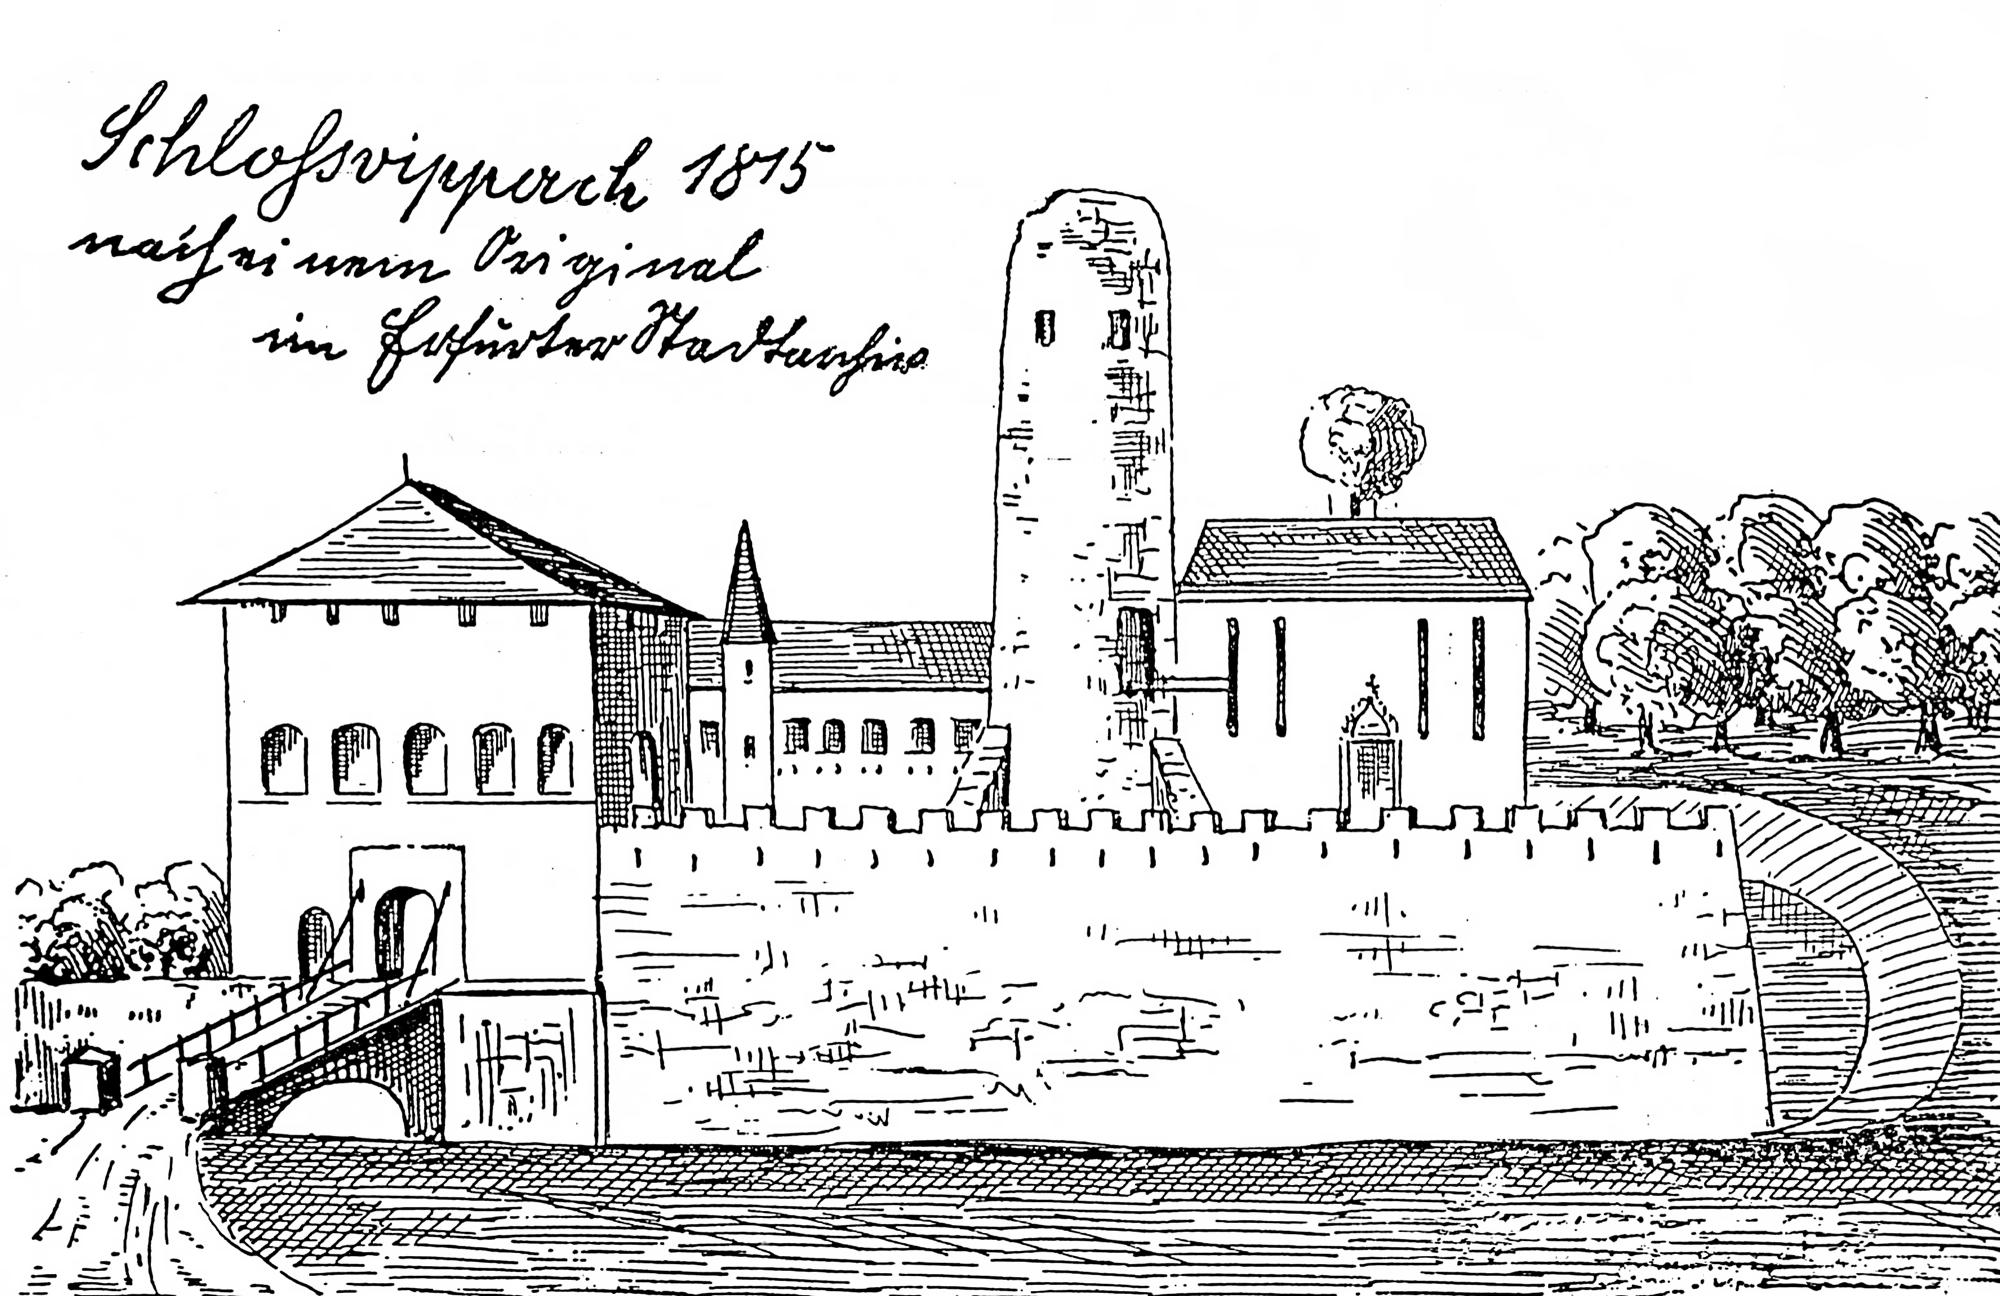 Schloßvippach 1815
nach einem Original
im Erfurter Stadtarchiv